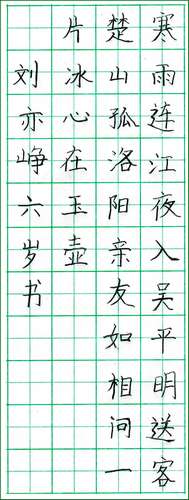 寒雨连江夜入吴平明送客
楚山孤洛阳亲友如相问一
片冰心在玉壶
刘亦峥六岁书